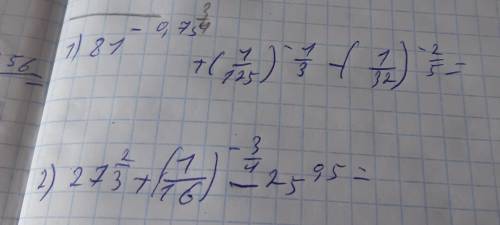 56
1) 81^{-0,75} \frac{3}{4} + (\frac{1}{125})^{-\frac{1}{3}} - (\frac{1}{32})^{-\frac{2}{5}} =
2) 27^{\frac{2}{3}} + (\frac{1}{16})^{-\frac{3}{4}} - 25^{0,5} =